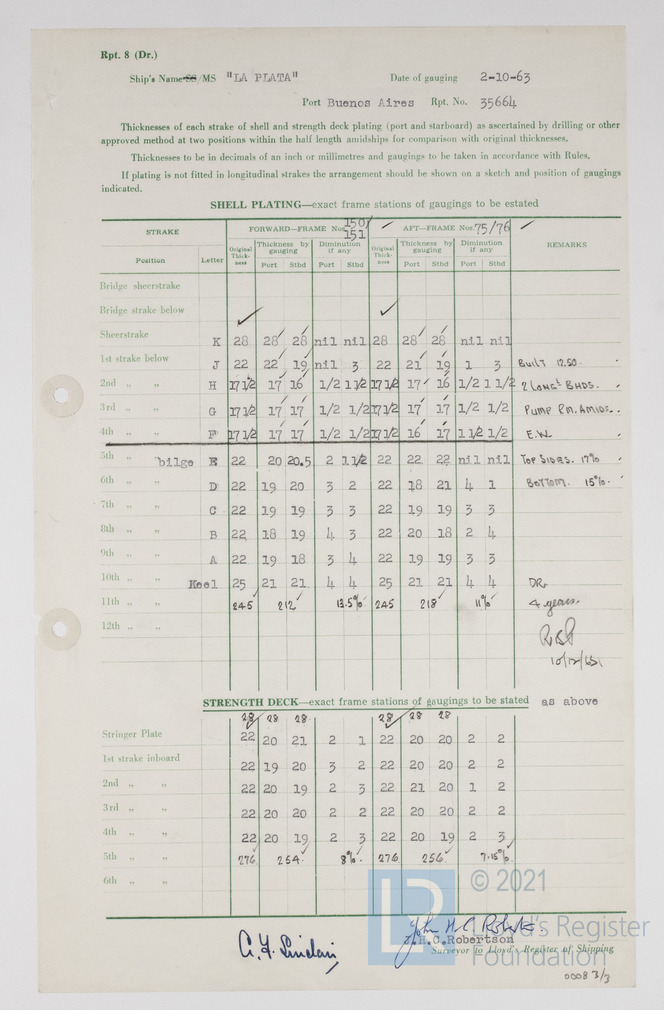 Rpt. 8 (Dr.)
Ship's Name SS/MS "LA PLATA" Date of gauging 2-10-63
Port Buenos Aires Rpt. No. 35664
Thicknesses of each strake of shell and strength deck plating (port and starboard) as ascertained by drilling or other
approved method at two positions within the half length amidships for comparison with original thicknesses.
Thicknesses to be in decimals of an inch or millimetres and gaugings to be taken in accordance with Rules.
If plating is not fitted in longitudinal strakes the arrangement should be shown on a sketch and position of gaugings
indicated.
SHELL PLATING—exact frame stations of gaugings to be estated
STRAKE FORWARD—FRAME Nos. 150/151 AFT—FRAME Nos. 75/76 REMARKS
Position Letter Original Thickness Thickness by gauging Diminution if any Original Thickness Thickness by gauging Diminution if any
Port Stbd Port Stbd Port Stbd Port Stbd
Bridge sheerstrake
Bridge strake below
Sheerstrake K 28 28 28 nil nil 28 28 28 nil nil
1st strake below J 22 22 19 nil 3 22 21 19 1 3 Built 12.50.
2nd „ „ H 17 1/2 17 16 1/2 1 1/2 17 1/2 17 16 1/2 1 1/2 2 Longl BHDS.
3rd „ „ G 17 1/2 17 17 1/2 1/2 17 1/2 17 17 1/2 1/2 Pump Rm. Amids.
4th „ „ F 17 1/2 17 17 1/2 1/2 17 1/2 16 17 1 1/2 1/2 E.W.
5th „ „ bilge E 22 20 20.5 2 1 1/2 22 22 22 nil nil Top Sides. 17%
6th „ „ D 22 19 20 3 2 22 18 21 4 1 Bottom. 15%.
7th „ „ C 22 19 19 3 3 22 19 19 3 3
8th „ „ B 22 18 19 4 3 22 20 18 2 4
9th „ „ A 22 19 18 3 4 22 19 19 3 3
10th „ „ Keel 25 21 21 4 4 25 21 21 4 4 DR.
11th „ „ 245 212 13.5% 245 218 11% 4 years.
12th „ „ RBP
10/12/63
STRENGTH DECK—exact frame stations of gaugings to be stated as above
28 28 28 28 28 28
Stringer Plate 22 20 21 2 1 22 20 20 2 2
1st strake inboard 22 19 20 3 2 22 20 20 2 2
2nd „ „ 22 20 19 2 3 22 21 20 1 2
3rd „ „ 22 20 20 2 2 22 20 20 2 2
4th „ „ 22 20 19 2 3 22 20 19 2 3
5th „ „ 276 254. 8%. 276 256. 7.15%
6th „ „
© 2021
Lloyd's Register
Foundation
John H.C. Robertson
A. F. Sinclair J.H.C.Robertson
Surveyor to Lloyd's Register of Shipping
0008 3/3